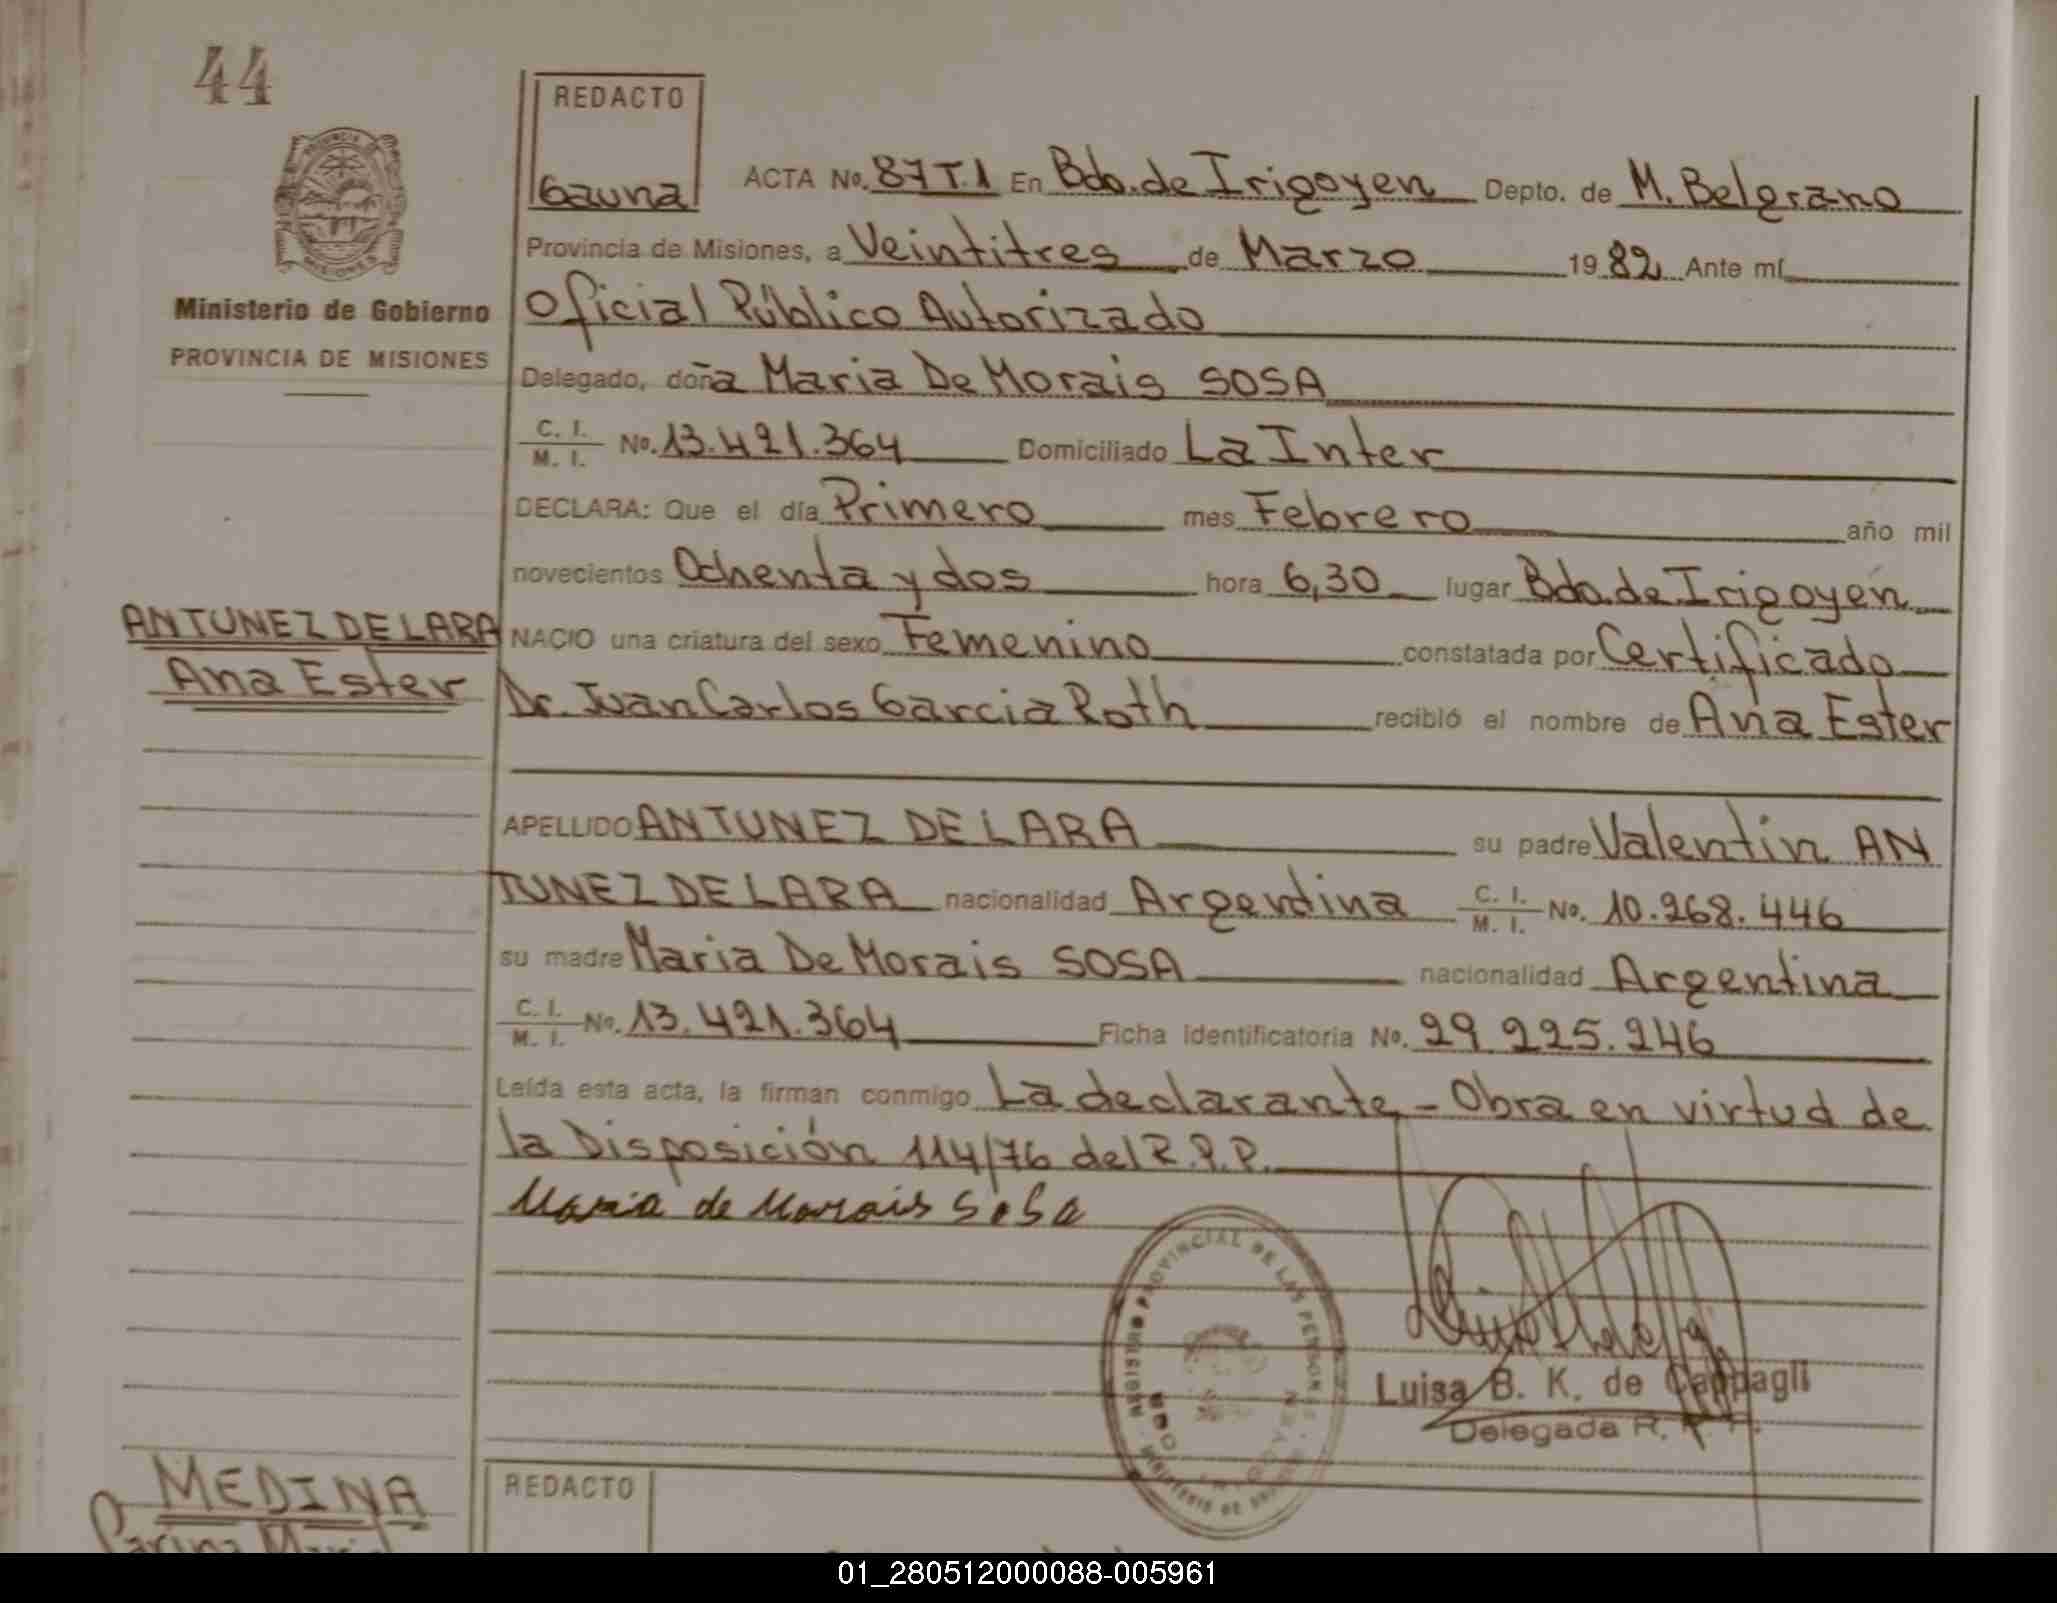 44
REDACTO
Gauna
ACTA No. 87 T.1 En Bdo. de Irigoyen Depto. de M. Belgrano
Provincia de Misiones, a Veintitres de Marzo 1982 Ante mí
Ministerio de Gobierno
PROVINCIA DE MISIONES
Oficial Público Autorizado
Delegado, doña Maria De Morais SOSA
C. I.
M. I. No. 13.421.364 Domiciliado La Inter
DECLARA: Que el día Primero mes Febrero año mil
novecientos Ochenta y dos hora 6,30 lugar Bdo. de Irigoyen
ANTUNEZ DE LARA
Ana Ester
NACIO una criatura del sexo Femenino constatada por Certificado
Dr. Juan Carlos Garcia Roth recibió el nombre de Ana Ester
APELLIDO ANTUNEZ DE LARA su padre Valentin AN
TUNEZ DE LARA nacionalidad Argentina C. I. M. I. No. 10.268.446
su madre Maria De Morais SOSA nacionalidad Argentina
C. I.
M. I. No. 13.421.364 Ficha identificatoria No. 29.225.246
Leída esta acta, la firman conmigo La declarante - Obra en virtud de
la Disposición 114/76 del R.P.P.
Maria de Morais Sosa
REGISTRO PROVINCIAL DE LAS PERSONAS
Luisa B. K. de Cappagli
Delegada R. P. P.
MEDINA
REDACTO
01_280512000088-005961